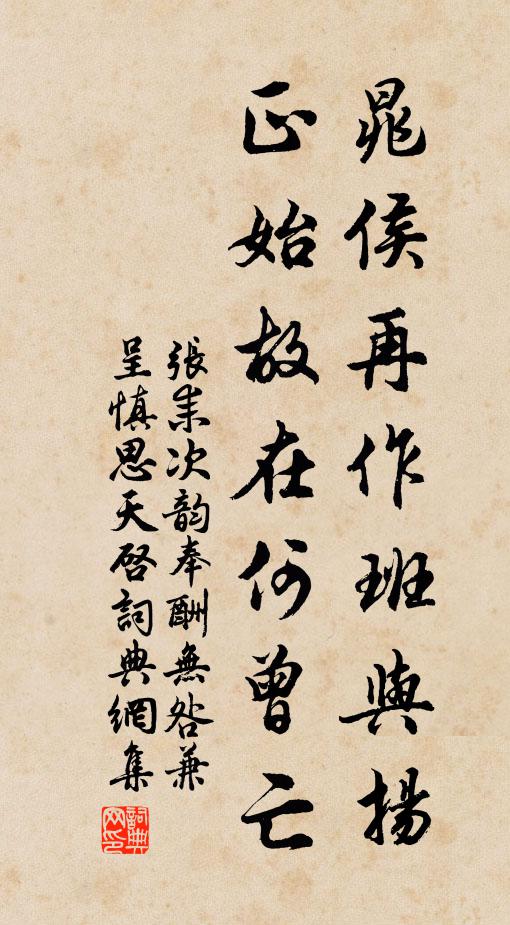 晁侯再作班與揚
正始故在何曾亡
張耒次韵奉酬無咎兼
呈慎思天啓詞典網集
詞典网印